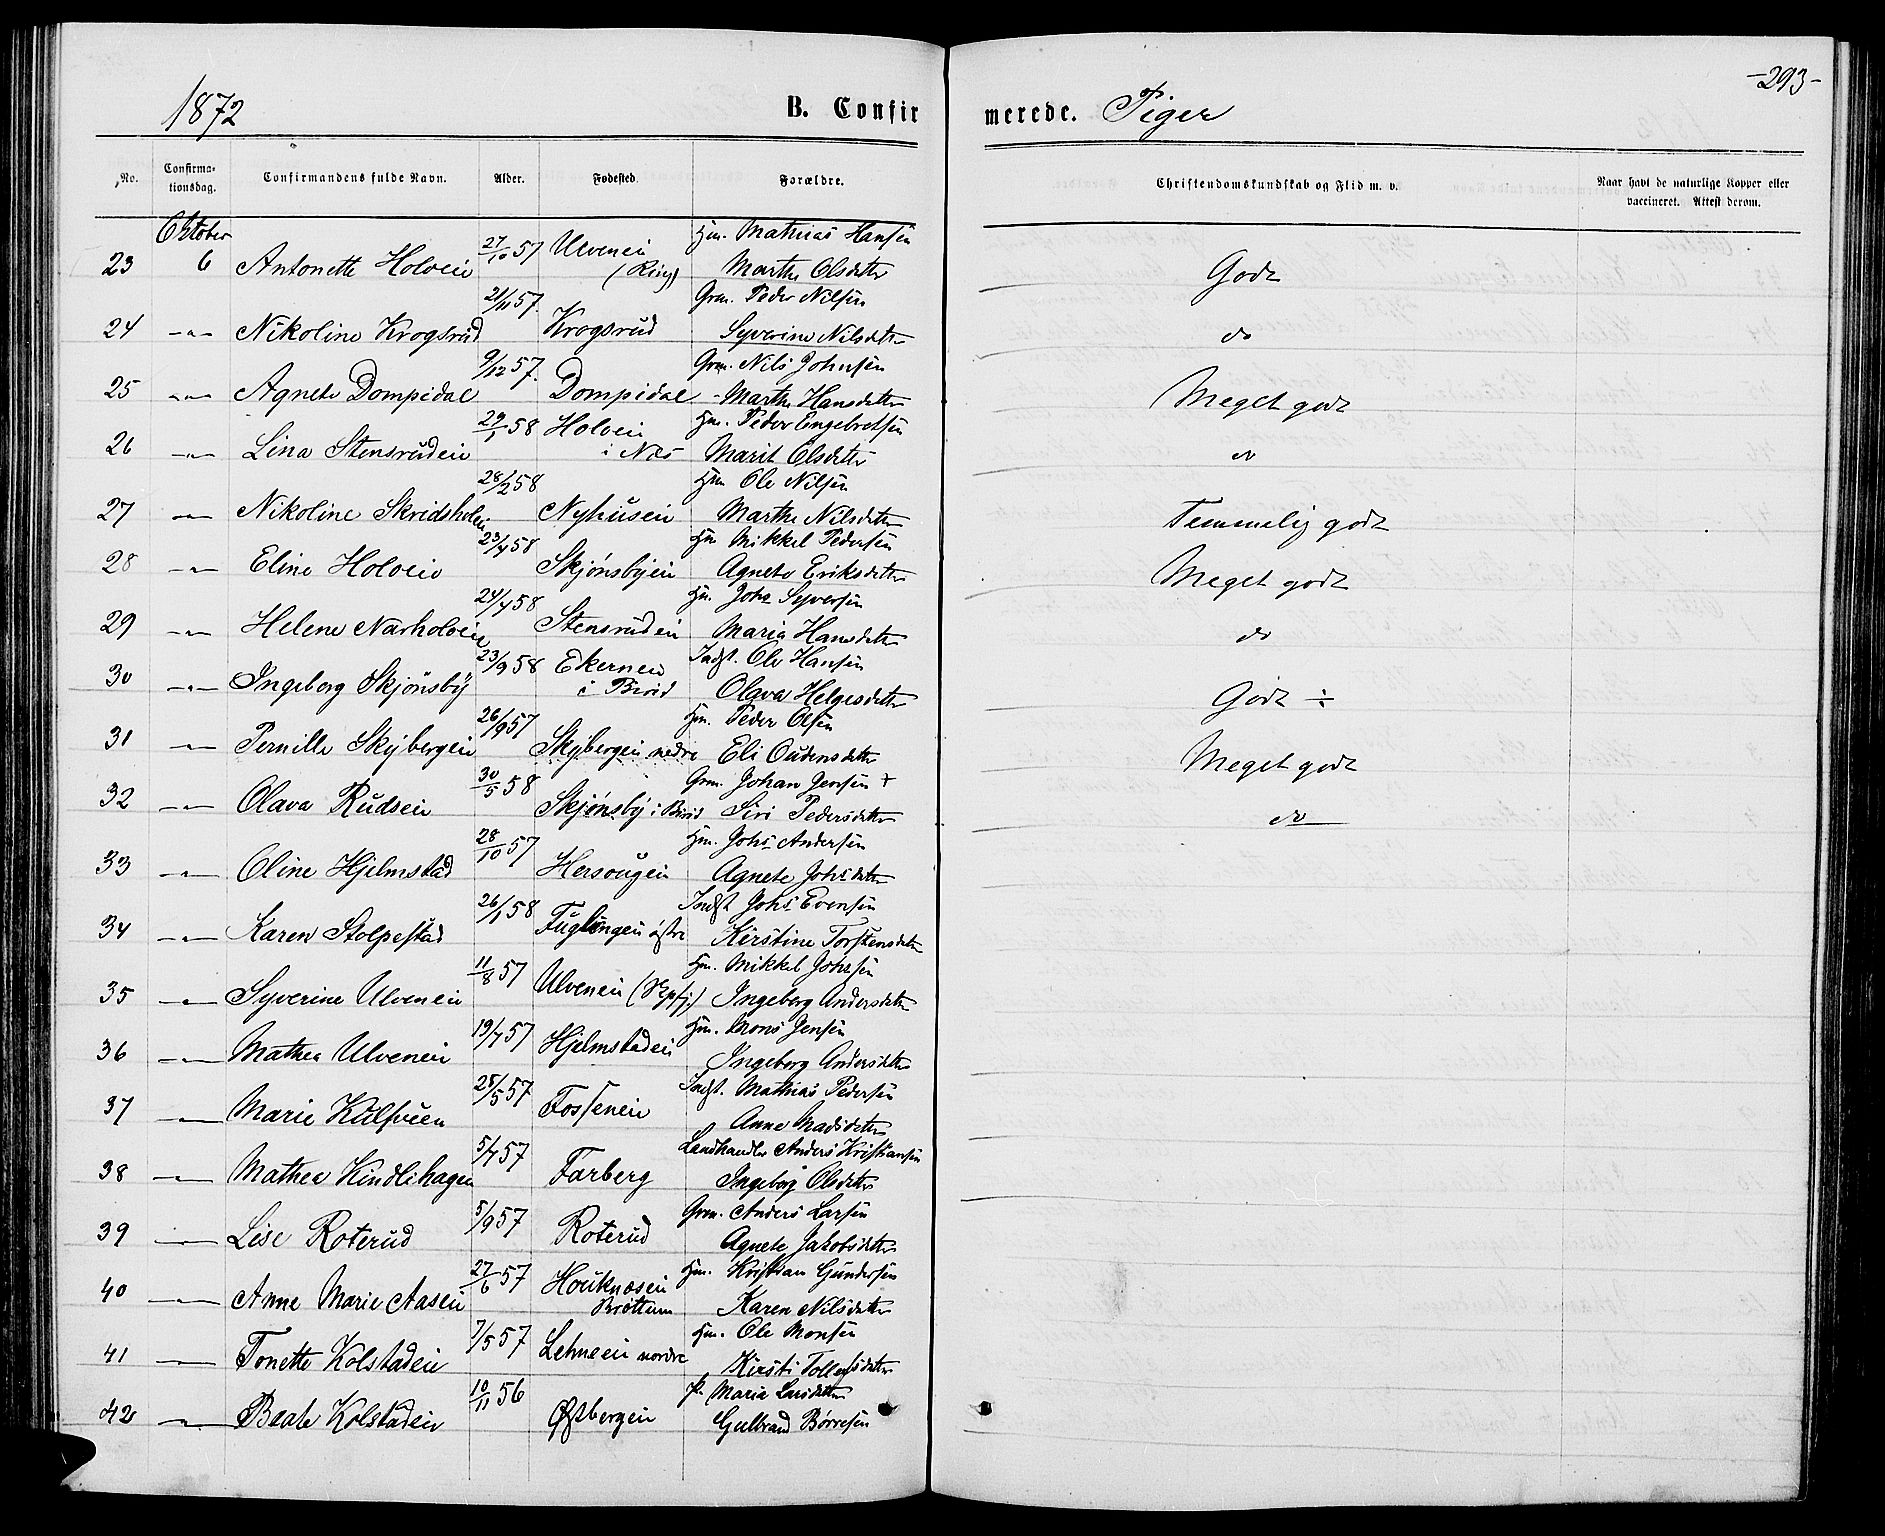 -293-
1872 B. Confirmerede. Piger
No. Confirmationsdag. Confirmandens fulde Navn. Alder. Fødested. Forældre. Christendomskundskab og Flid m. v. Naar havt de naturlige Kopper eller vaccineret. Attest derom.
Oktober
23 6 Antonette Holveie 27/10 57 Ulveneie (Ring) Hm. Mathias Hansen
Marthe Olsdatter Godt
24 -"- Nikoline Krogsrud 21/11 57. Krogsrud Grm. Peder Nilsen
Syverine Nilsdatter do
25 -"- Agnete Dompidal 9/12 57. Dompidal Grm. Nils Johnsen
Marthe Hansdatter Meget godt
26 -"- Lina Stensrudeie 29/1 58 Holveie i Næs Hm. Peder Engebretsen
Marit Olsdatter do
27 -"- Nikoline Skridsholeie 28/2 58 Nyhuseie Hm Ole Nilsen
Marthe Nilsdatter Temmelig godt
28 -"- Eline Holveie 23/4 58 Skjønsbyeie Hm Mikkel Pedersen
Agnete Eriksdatter Meget godt
29 -"- Helene Narholveie 24/4 58 Stensrudeie Hm. Johs Syversen
Maria Hansdatter do
30 -"- Ingeborg Skjønsby 23/9 58 Ekerneie i Birid Indst. Ole Hansen
Olava Helgesdatter Godt ÷
31 -"- Pernille Skybergeie 26/9 57 Skybergeie nedre Hm. Peder Olsen
Eli Oudensdatter Meget godt
32 -"- Olava Rudseie 30/5 58 Skjønsby i Birid Grm. Johan Jensen +
Siri Pedersdatter do
33 -"- Oline Hjelmstad 28/10 57 Hersougeie Hm. Johs Andersen
Agnete Johsdatter
34 -"- Karen Stolpestad 26/1 58 Fuglingeie østre Indst Johs Evensen
Kirstine Torstensdatter
35 -"- Syverine Ulveneie 11/8 57 Ulveneie Hm. Mikkel Johsen
Ingeborg Andersdatter
36 -"- Mathea Ulveneie 19/7 57 Hjelmstadeie Hm. Mons Jensen
Ingeborg Andersdatter
37 -"- Marie Kulsveen 25/5 57 Fosseneie Indst. Mathias Pedersen
Anne Madsdatter
38 -"- Mathea Kindlihagen 5/7 57 Farberg Landhandler Anders Kristiansen
Ingeborg Olsdatter
39 -"- Lise Roterud 5/9 57 Roterud Grm. Anders Larsen
Agnete Jakobsdatter
40 -"- Anne Marie Aaseie 27/6 57 Houknæseie Brøttum Hm. Kristian Gundersen
Karen Nilsdatter
41 -"- Tonette Kolstadeie 7/5 57 Lehneeie nordre Hm. Ole Monsen
Kirsti Tollefsdatter
42 -"- Beate Kolstadeie 10/11 56 Østbergeie P. Maria Larsdatter
Gulbrand Børresen